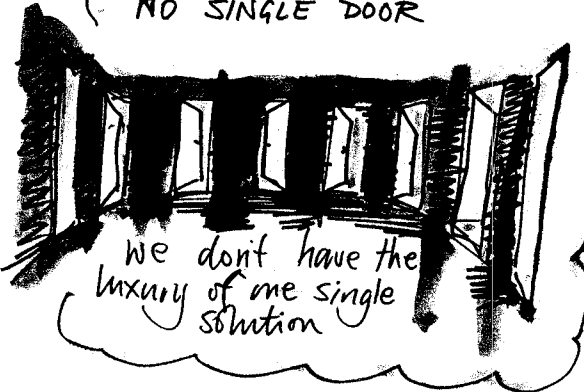 NO SINGLE DOOR
we don't have the
luxury of one single
solution